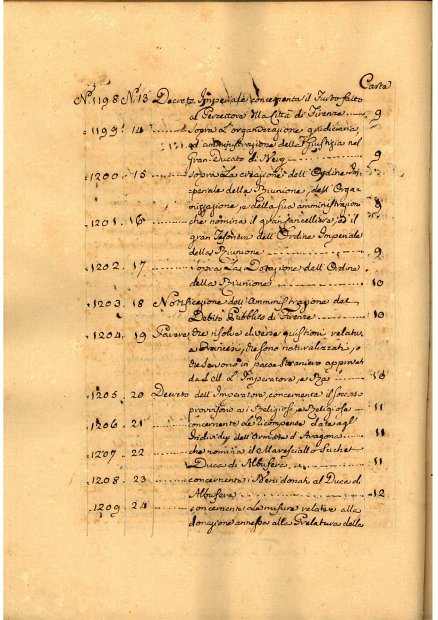 Carta
N.º 1198 N.º 13 Decreto Imperiale concernente il Furto fatto
al Percettore della Città di Firenze 9
1199 14 Sopra l'organizzazione giudiciaria,
ed amministrazione della Giustizia nel
Gran-Ducato di Berg 9
1200 15 Sopra la creazione dell'Ordine Im-
periale della Riunione, dell'Orga-
nizzazione, e della sua amministrazione 8
1201 16 che nomina il gran Cancelliere, ed il
gran Tesoriere dell'Ordine Imperiale
della Riunione 9
1202 17 Sopra la Dotazione dell'Ordine
della Riunione 10
1203 18 Notificazione dell'Amministrazione del
Debito Pubblico di Firenze 10
1204 19 Parere che risolve diverse quistioni relative
a Francesi, che sono naturalizzati, o
che servono in paese straniero approvato
da L'Imperatore, e Re 10
1205 20 Decreto dell'Imperatore concernente il soccorso
provvisorio ai Religiosi, e Religiose 11
1206 21 concernente le ricompense date agl'
Individj dell'Armata d'Aragona 11
1207 22 che nomina il Maresciallo Suchet
Duca di Albufera 11
1208 23 concernente i Beni donati al Duca di
Albufera 12
1209 24 concernente le misure relative alla
donazione annessa alla Prelatura della